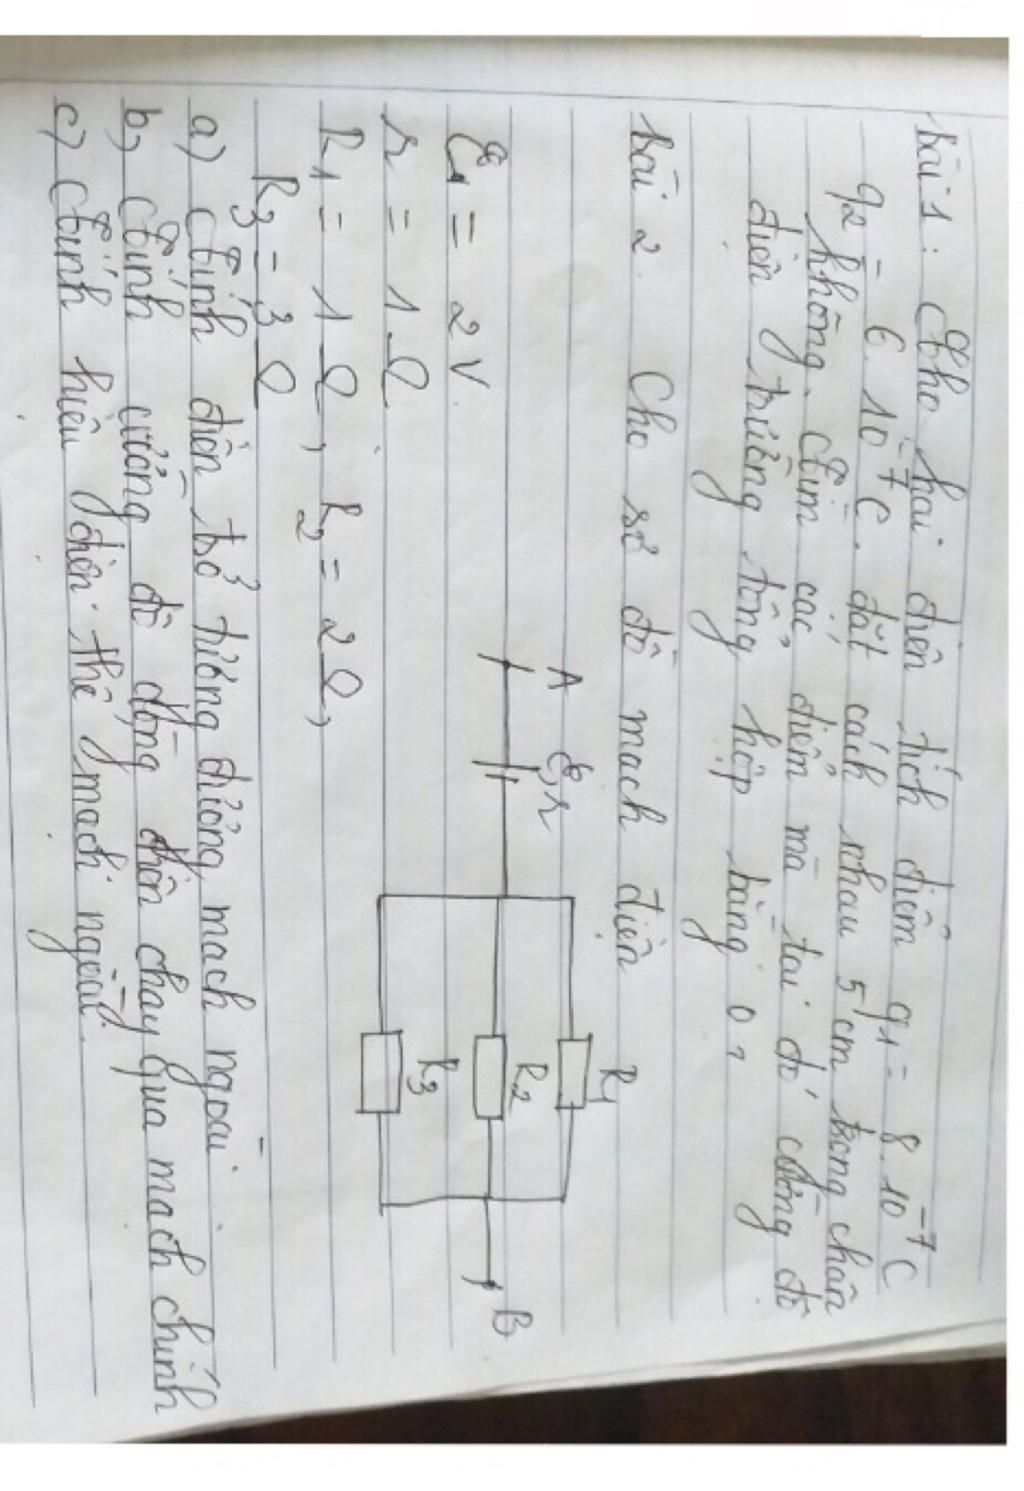 bài 1: Cho hai điện tích điểm q1 = 8.10⁻⁷C
q2 = 6.10⁻⁷C. đặt cách nhau 5 cm trong chân
không. Tìm các điểm mà tại đó cường độ
điện trường tổng hợp bằng 0?
bài 2. Cho sơ đồ mạch điện
A ξ,r
ξ = 2V.
r = 1Ω
R1
R2
R3
B
R1 = 1Ω, R2 = 2Ω,
R3 = 3Ω
a) Tính điện trở tương đương mạch ngoài.
b, Tính cường độ dòng điện chạy qua mạch chính
c, Tính hiệu điện thế mạch ngoài.